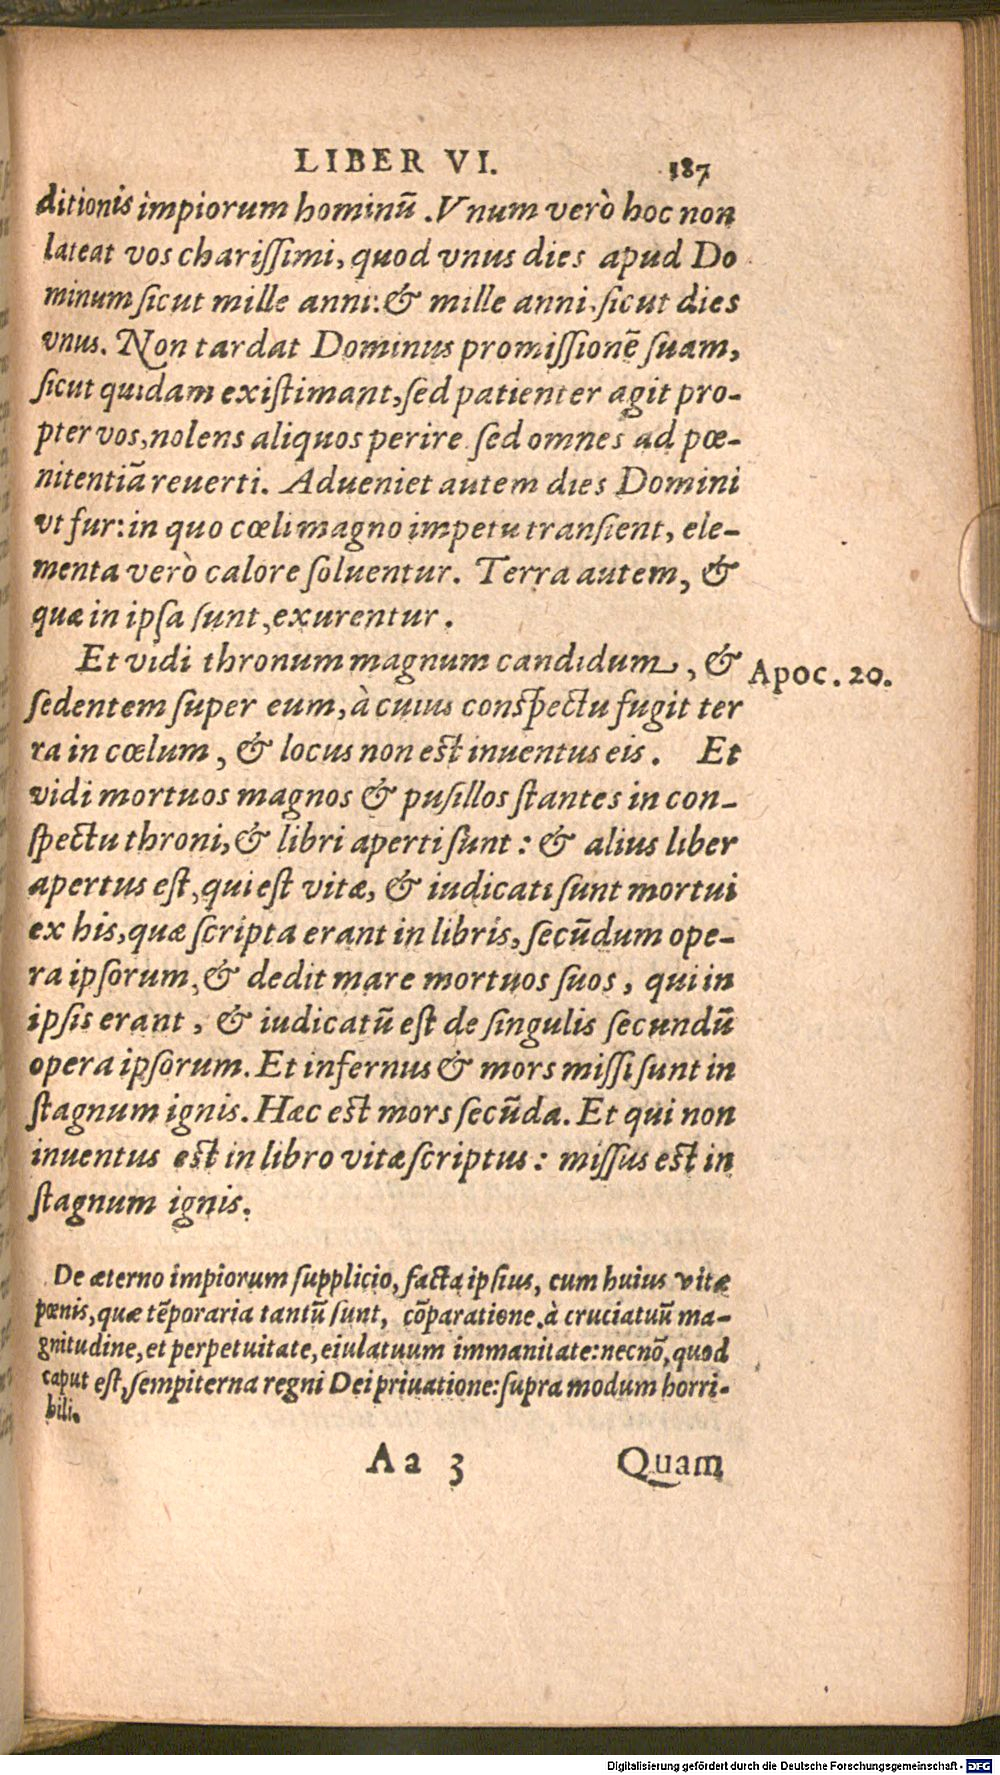 LIBER VI. 187
ditionis impiorum hominū. Vnum verò hoc non
lateat vos charissimi, quod vnus dies apud Do
minum sicut mille anni: & mille anni sicut dies
vnus. Non tardat Dominus promissionē suam,
sicut quidam existimant, sed patienter agit pro-
pter vos, nolens aliquos perire sed omnes ad pœ-
nitentiā reuerti. Adueniet autem dies Domini
vt fur: in quo cœli magno impetu transient, ele-
menta verò calore soluentur. Terra autem, &
quæ in ipsa sunt, exurentur.
Et vidi thronum magnum candidum, & Apoc. 20.
sedentem super eum, à cuius conspectu fugit ter
ra in cœlum, & locus non est inuentus eis. Et
vidi mortuos magnos & pusillos stantes in con-
spectu throni, & libri aperti sunt: & alius liber
apertus est, qui est vitæ, & iudicati sunt mortui
ex his, quæ scripta erant in libris, secūdum ope-
ra ipsorum, & dedit mare mortuos suos, qui in
ipsis erant, & iudicatū est de singulis secundū
opera ipsorum. Et infernus & mors missi sunt in
stagnum ignis. Hæc est mors secūda. Et qui non
inuentus est in libro vitæ scriptus: missus est in
stagnum ignis.
De æterno impiorum supplicio, facta ipsius, cum huius vitæ
pœnis, quæ tēporaria tantū sunt, cōparatione, à cruciatuū ma-
gnitudine, et perpetuitate, eiulatuum immanitate: necnō, quod
caput est, sempiterna regni Dei priuatione: supra modum horri-
bili.
Aa 3 Quam
Digitalisierung gefördert durch die Deutsche Forschungsgemeinschaft - DFG